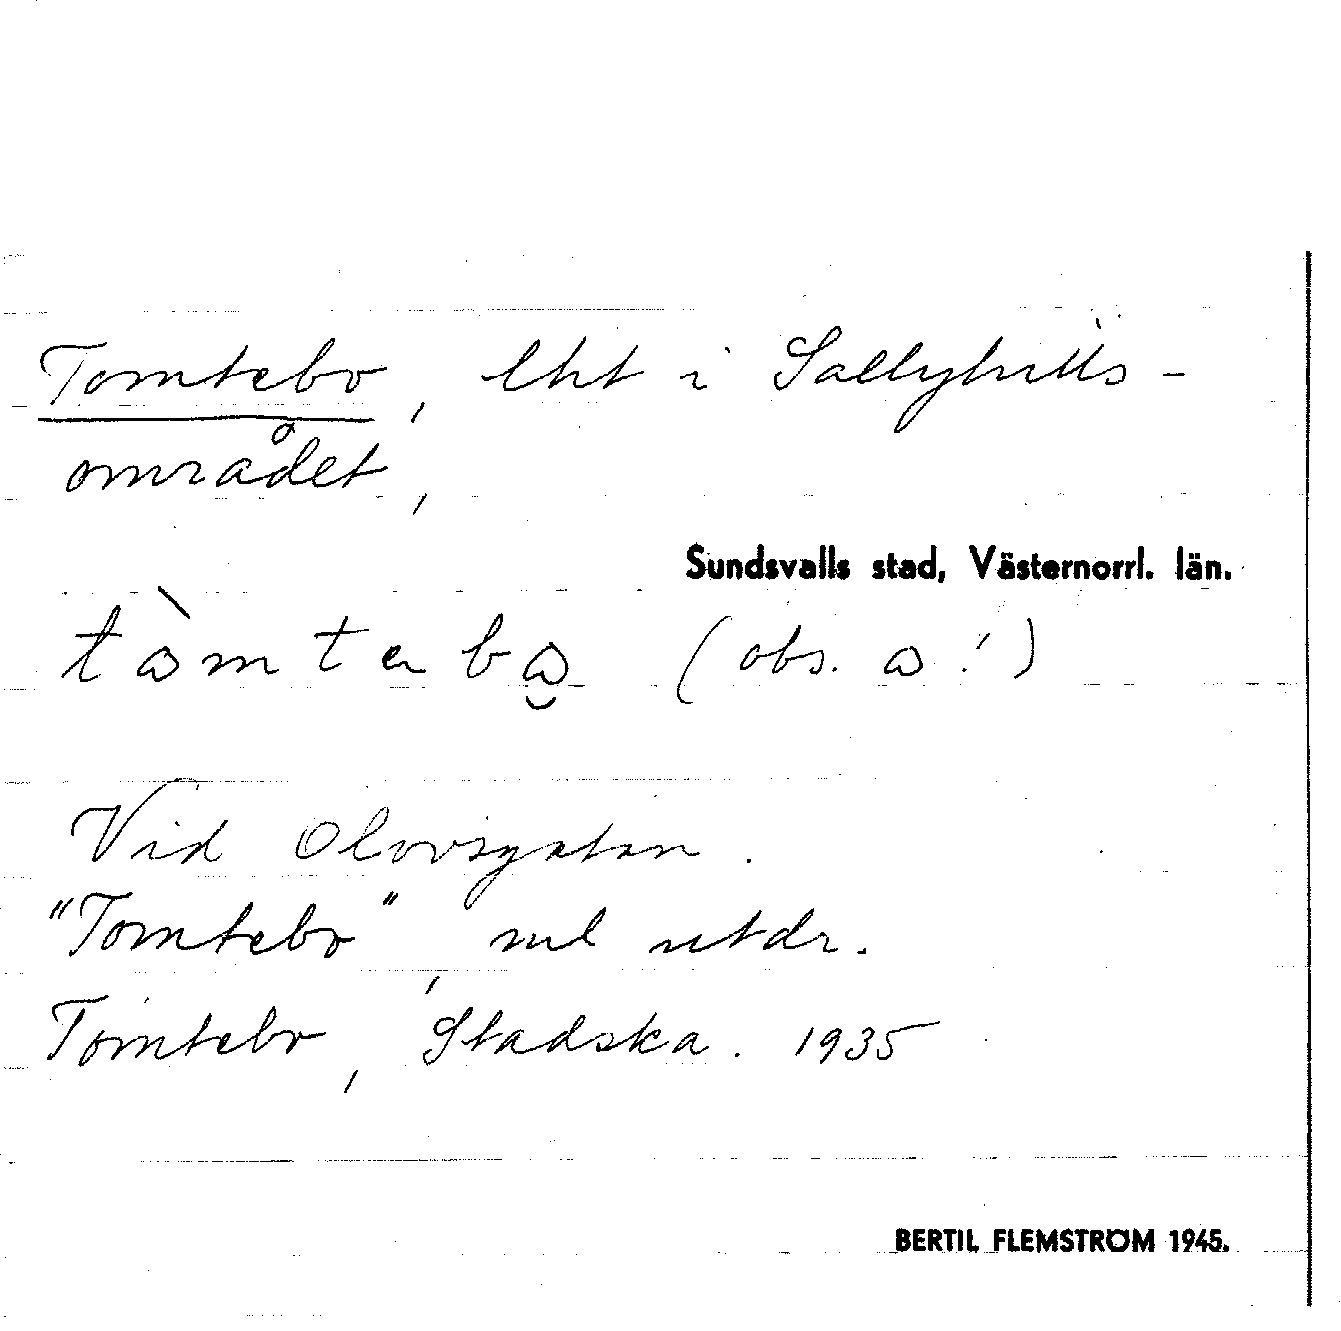 Tomtebo, lht i Sallyhills-
området,
Sundsvalls stad, Västernorrl. län.
tòmtebo (obs. o !)
Vid Olovsgatan.
"Tomtebo", enl utdr.
Tomtebo, Stadska. 1935
BERTIL FLEMSTRÖM 1945.